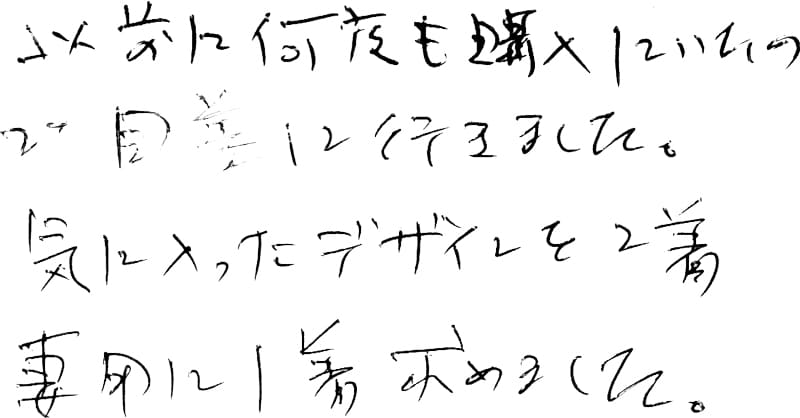 以前に何度も購入していたの
で 目当に行きました。
気に入ったデザインを2着
妻用に1着求めました。